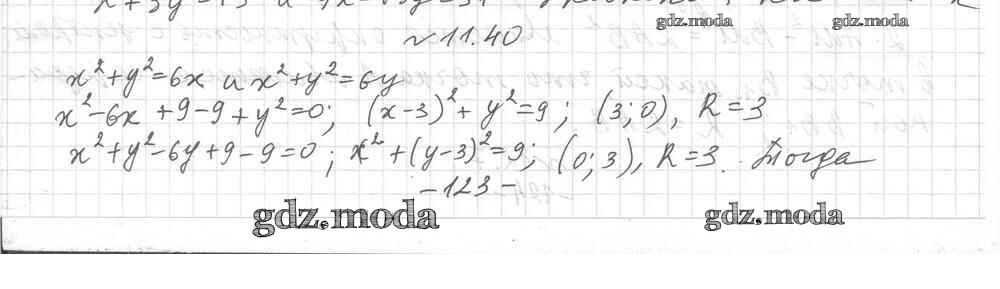 gdz.moda gdz.moda
№ 11.40
x²+y²=6x и x²+y²=6y
x²-6x+9-9+y²=0; (x-3)²+y²=9; (3;0), R=3
x²+y²-6y+9-9=0; x²+(y-3)²=9; (0;3), R=3. Тогда
-123-
gdz.moda gdz.moda